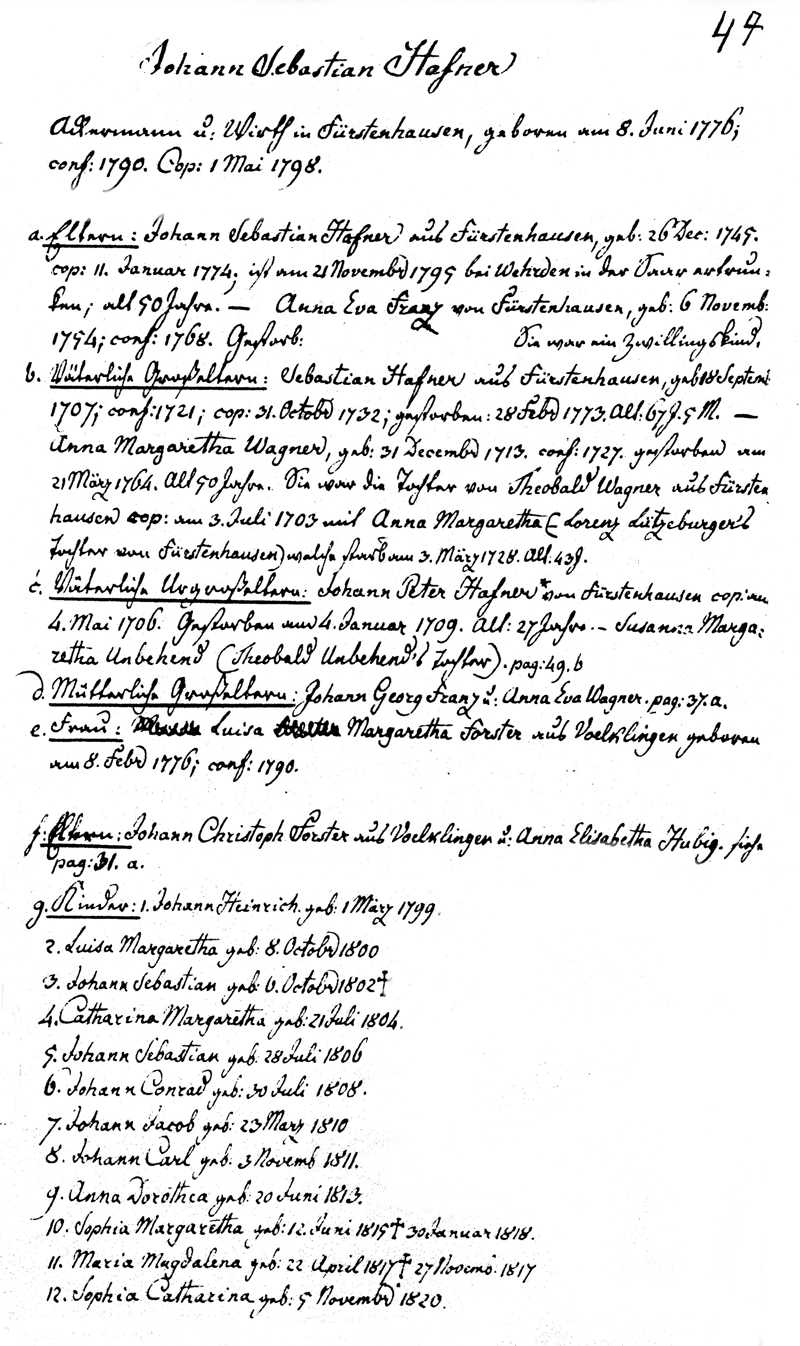 47
Johann Sebastian Hafner
Ackermann u: Wirth in Fürstenhausen, geboren am 8. Juni 1776;
conf: 1790. Cop: 1 Mai 1798.
a. Eltern: Johann Sebastian Hafner aus Fürstenhausen, geb: 26 Dec: 1745.
cop: 11. Januar 1774; ist am 21 Novembr 1795 bei Wehrden in der Saar ertrun-
ken; alt 50 Jahre. — Anna Eva Franz von Fürstenhausen, geb: 6 Novemb:
1754; conf: 1768. Gestorb: Sie war ein Zwillingskind.
b. Väterliche Großeltern: Sebastian Hafner aus Fürstenhausen, geb 18 Septem:
1707; conf: 1721; cop: 31. Octobr 1732; gestorben: 28 Febr 1773. Alt: 67 J. 5 M. —
Anna Margaretha Wagner, geb: 31 Decembr 1713. conf: 1727. gestorben am
21 März 1764. Alt 50 Jahre. Sie war die Tochter von Theobald Wagner aus Fürsten
hausen cop: am 3. Juli 1703 mit Anna Margaretha (Lorenz Lützeburger's
Tochter von Fürstenhausen) welche starb am 3. März 1728. Alt: 43 J.
c. Väterliche Urgroßeltern: Johann Peter Hafner * von Fürstenhausen cop: am
4. Mai 1706. Gestorben am 4. Januar 1709. Alt: 27 Jahre. — Susanna Marga-
retha Unbehend (Theobald Unbehend's Tochter). pag: 49. b
d. Mütterliche Großeltern: Johann Georg Franz u: Anna Eva Wagner. pag: 37. a.
e. Frau: Luisa Margaretha Forster aus Voelklingen geboren
am 8. Febr 1776; conf: 1790.
f. Eltern: Johann Christoph Forster aus Voelklingen u: Anna Elisabetha Hubig. siehe
pag: 31. a.
g. Kinder: 1. Johann Heinrich. geb: 1 März 1799.
2. Luisa Margaretha geb: 8. Octobr 1800
3. Johann Sebastian geb: 6. Octobr 1802 †
4. Catharina Margaretha geb: 21 Juli 1804.
5. Johann Sebastian geb: 28 Juli 1806
6. Johann Conrad geb: 30 Juli 1808.
7. Johann Jacob geb: 23 März 1810
8. Johann Carl geb: 3 Novemb 1811.
9. Anna Dorothea geb: 20 Juni 1813.
10. Sophia Margaretha geb: 12. Juni 1815 † 30 Januar 1818.
11. Maria Magdalena geb: 22 April 1817 † 27 Novemb. 1817
12. Sophia Catharina geb: 5 Novembr 1820.